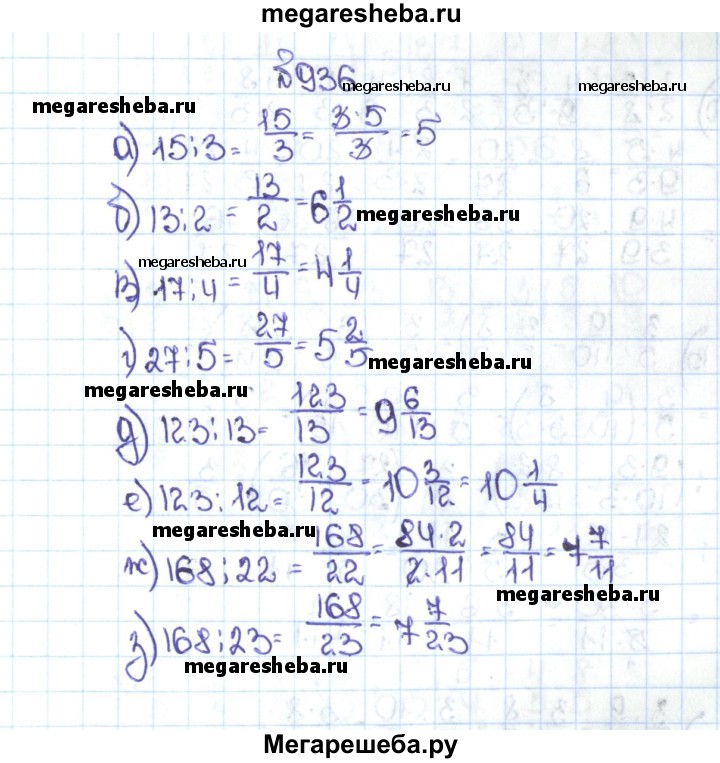 megaresheba.ru
№936
megaresheba.ru megaresheba.ru
megaresheba.ru
а) 15:3 = 15/3 = 3·5/3 = 5
б) 13:2 = 13/2 = 6 1/2
megaresheba.ru
megaresheba.ru
в) 17:4 = 17/4 = 4 1/4
г) 27:5 = 27/5 = 5 2/5
megaresheba.ru
megaresheba.ru
д) 123:13 = 123/13 = 9 6/13
megaresheba.ru
е) 123:12 = 123/12 = 10 3/12 = 10 1/4
megaresheba.ru
ж) 168:22 = 168/22 = 84·2/2·11 = 84/11 = 7 7/11
megaresheba.ru
з) 168:23 = 168/23 = 7 7/23
megaresheba.ru
Мегарешеба.ру